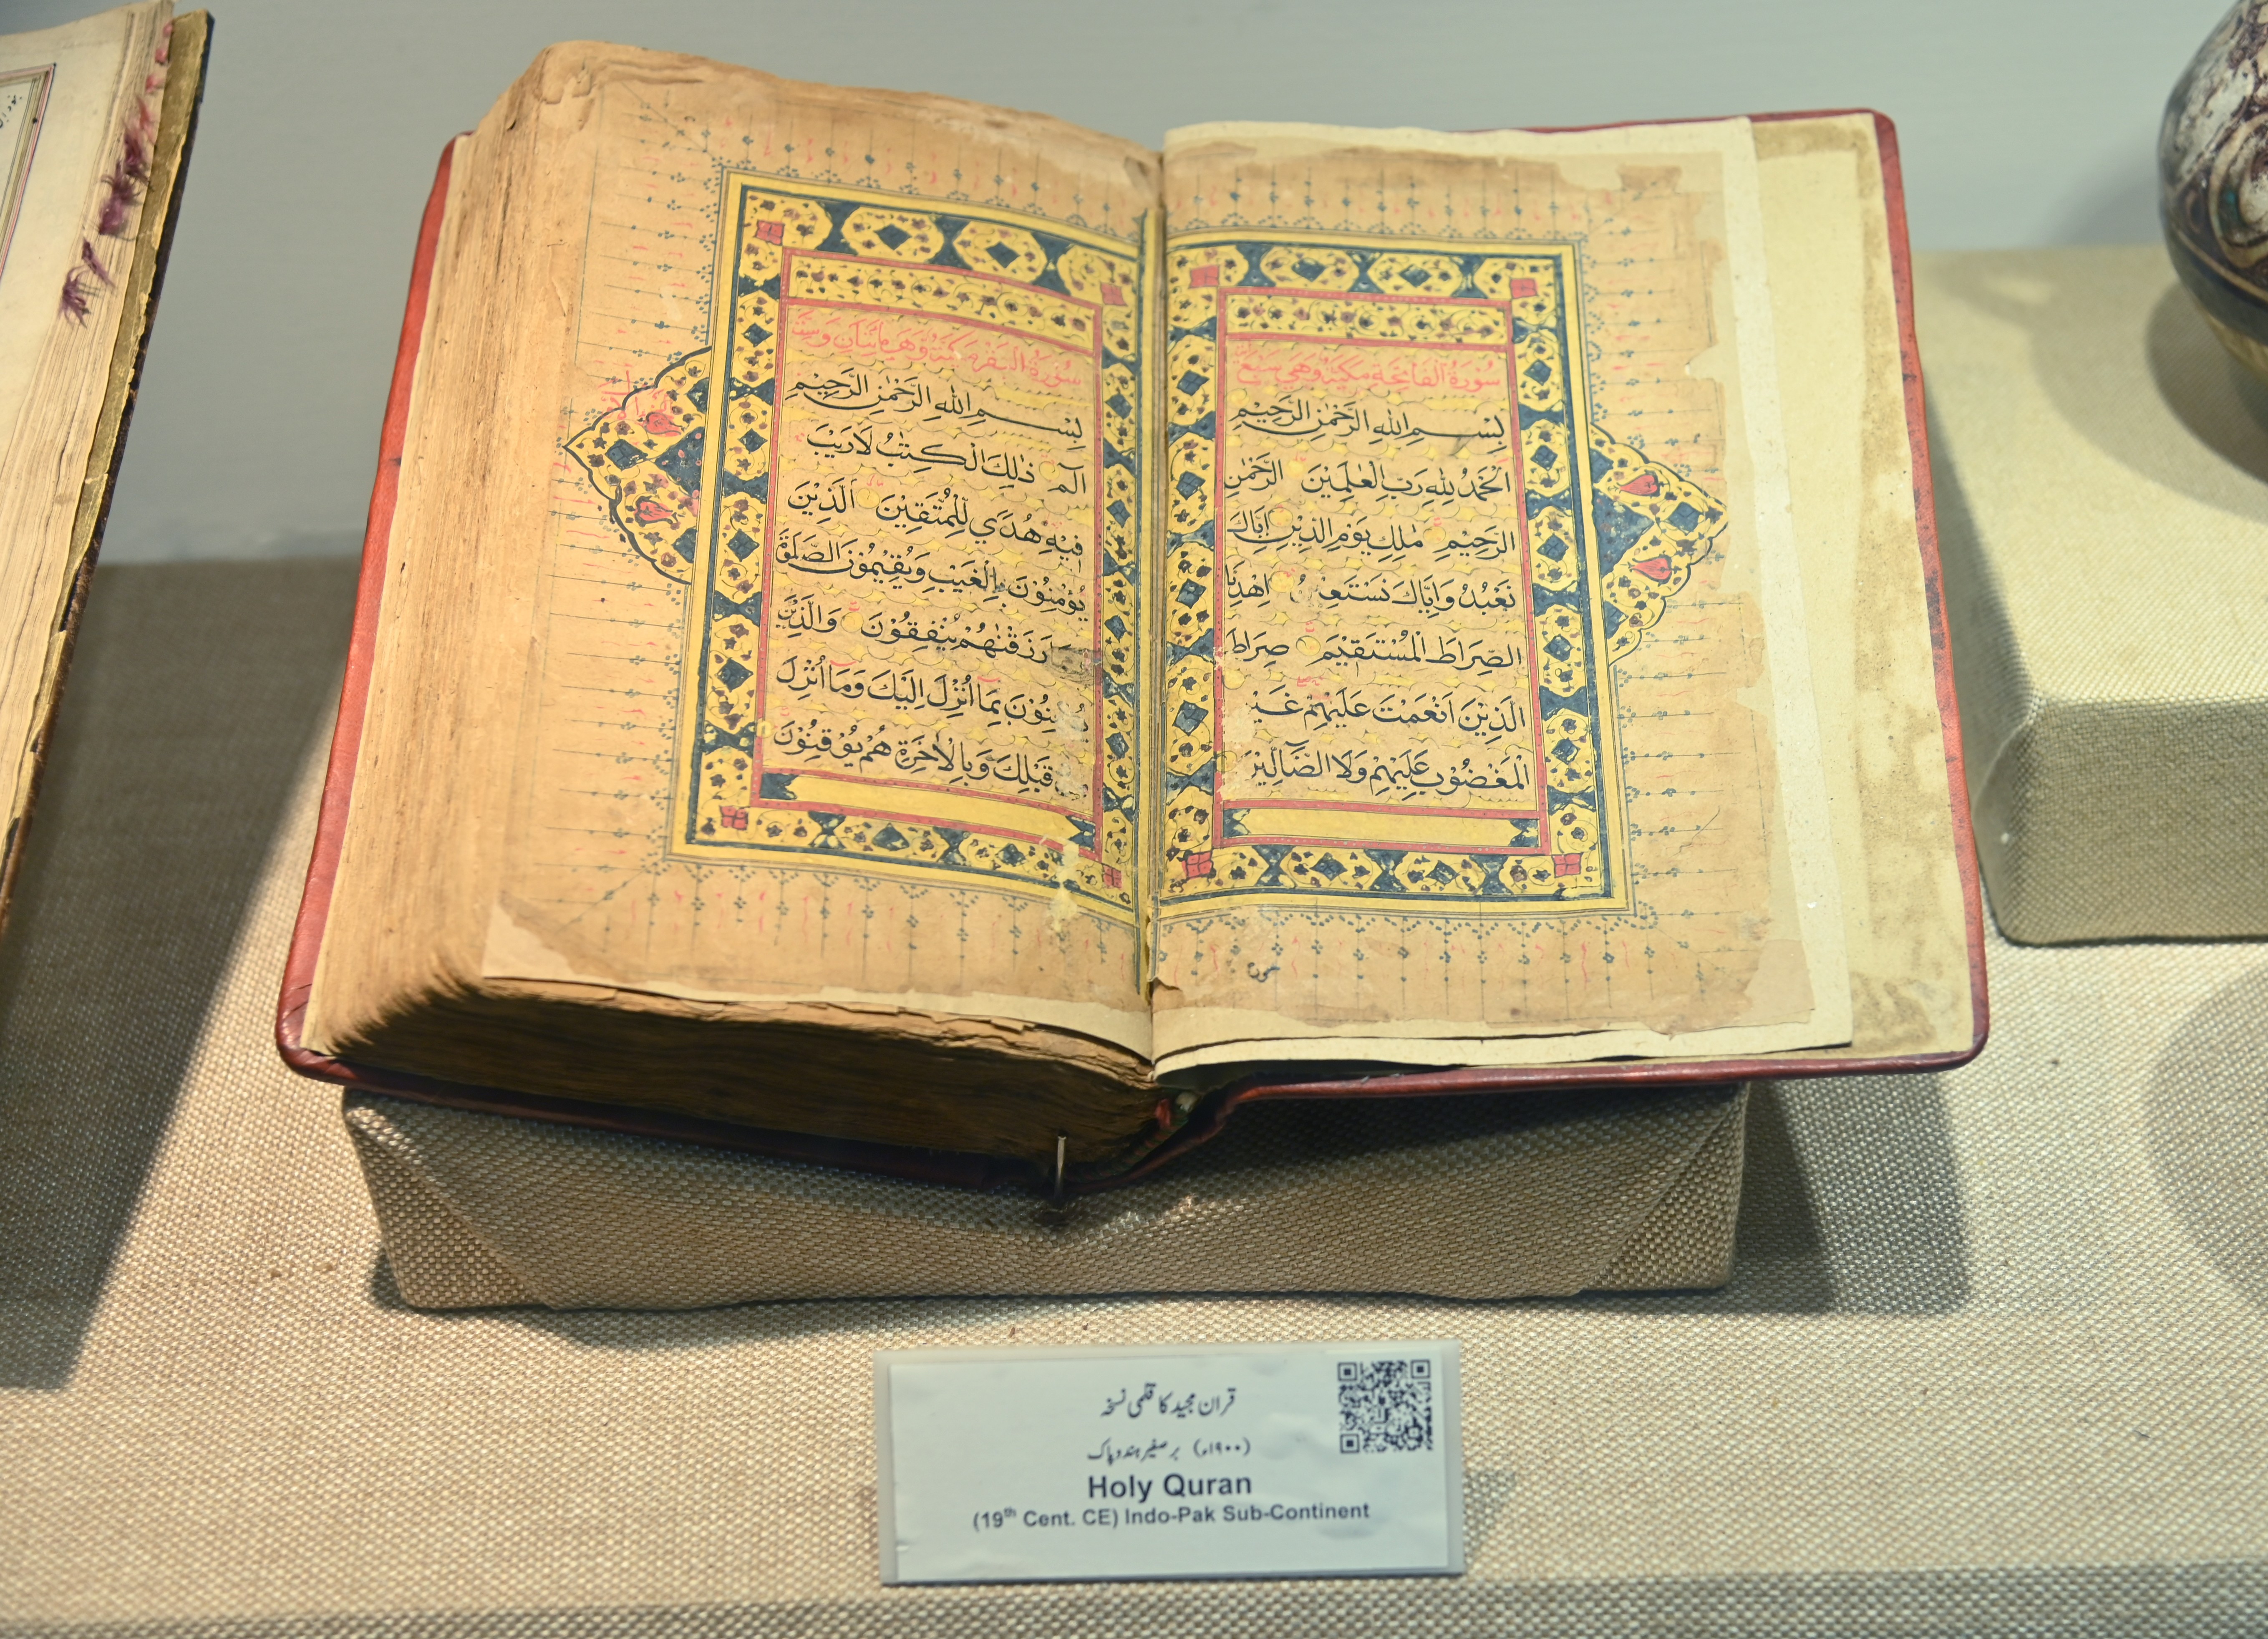 سُوْرَةُ الْفَاتِحَةِ مَكِّيَّةٌ وَّهِيَ سَبْعُ
بِسْمِ اللهِ الرَّحْمٰنِ الرَّحِيْمِ
اَلْحَمْدُ لِلّٰهِ رَبِّ الْعٰلَمِيْنَ الرَّحْمٰنِ
الرَّحِيْمِ مٰلِكِ يَوْمِ الدِّيْنِ اِيَّاكَ
نَعْبُدُ وَاِيَّاكَ اِهْدِنَا
الصِّرَاطَ الْمُسْتَقِيْمَ صِرَاطَ
الَّذِيْنَ اَنْعَمْتَ عَلَيْهِمْ غَيْرِ
الْمَغْضُوْبِ عَلَيْهِمْ وَلَا الضَّآلِّيْنَ
سُوْرَةُ الْبَقَرَةِ وَهِيَ مِائَتَانِ وَسِتّ
بِسْمِ اللهِ الرَّحْمٰنِ الرَّحِيْمِ
الٓمّٓ ذٰلِكَ الْكِتٰبُ لَارَيْبَ
فِيْهِ هُدًى لِّلْمُتَّقِيْنَ الَّذِيْنَ
يُؤْمِنُوْنَ بِالْغَيْبِ وَيُقِيْمُوْنَ الصَّلٰوةَ
رَزَقْنٰهُمْ يُنْفِقُوْنَ وَالَّذِيْنَ
يُؤْمِنُوْنَ بِمَا اُنْزِلَ اِلَيْكَ وَمَا اُنْزِلَ
قَبْلِكَ وَبِالْاٰخِرَةِ هُمْ يُوْقِنُوْنَ
قران مجید کا قلمی نسخہ
(۱۹۰۰ء) برصغیر ہندوپاک
Holy Quran
(19th Cent. CE) Indo-Pak Sub-Continent